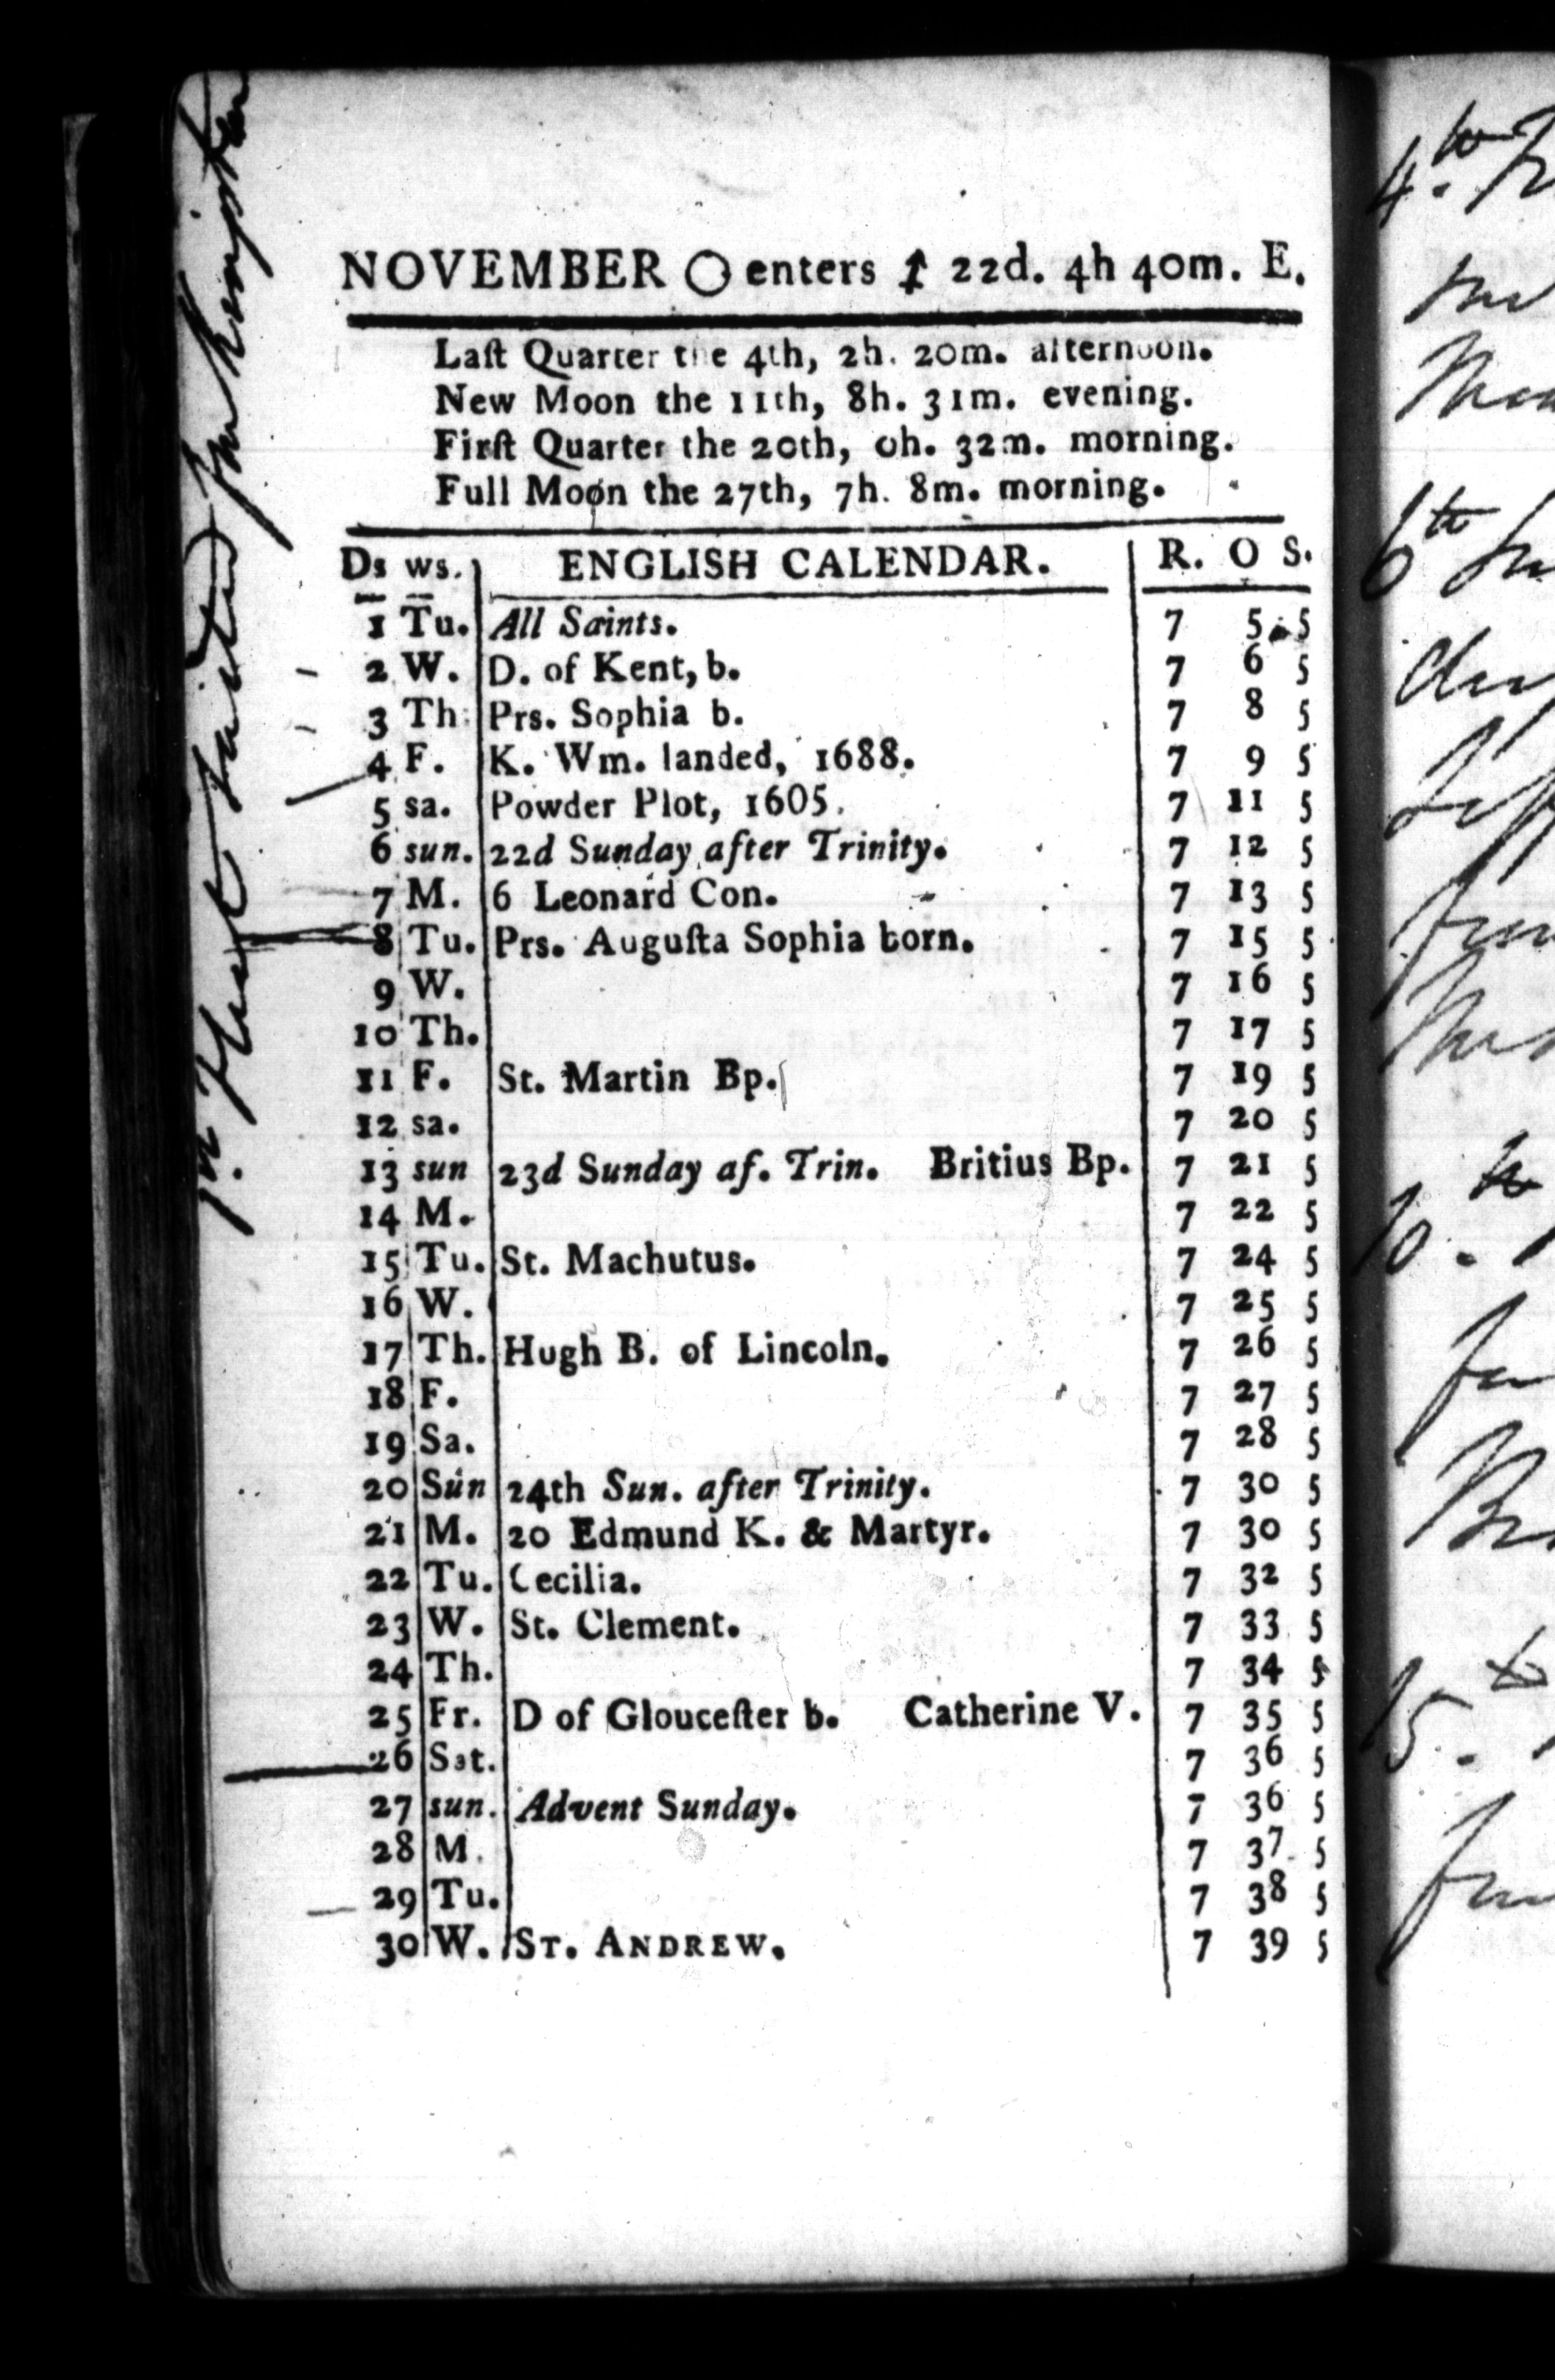 NOVEMBER ○ enters ♐ 22d. 4h 40m. E.
Laſt Quarter the 4th, 2h. 20m. afternoon.
New Moon the 11th, 8h. 31m. evening.
Firſt Quarter the 20th, 0h. 32m. morning.
Full Moon the 27th, 7h. 8m. morning.
Ds ws. ENGLISH CALENDAR. R. O S.
1 Tu. All Saints. 7 5 5
2 W. D. of Kent, b. 7 6 5
3 Th Prs. Sophia b. 7 8 5
4 F. K. Wm. landed, 1688. 7 9 5
5 sa. Powder Plot, 1605. 7 11 5
6 sun. 22d Sunday after Trinity. 7 12 5
7 M. 6 Leonard Con. 7 13 5
8 Tu. Prs. Auguſta Sophia born. 7 15 5
9 W. 7 16 5
10 Th. 7 17 5
11 F. St. Martin Bp. 7 19 5
12 sa. 7 20 5
13 sun 23d Sunday af. Trin. Britius Bp. 7 21 5
14 M. 7 22 5
15 Tu. St. Machutus. 7 24 5
16 W. 7 25 5
17 Th. Hugh B. of Lincoln. 7 26 5
18 F. 7 27 5
19 Sa. 7 28 5
20 Sun 24th Sun. after Trinity. 7 30 5
21 M. 20 Edmund K. & Martyr. 7 30 5
22 Tu. Cecilia. 7 32 5
23 W. St. Clement. 7 33 5
24 Th. 7 34 5
25 Fr. D of Glouceſter b. Catherine V. 7 35 5
26 Sat. 7 36 5
27 sun. Advent Sunday. 7 36 5
28 M. 7 37 5
29 Tu. 7 38 5
30 W. ST. ANDREW. 7 39 5
4th
6th
10th
15th